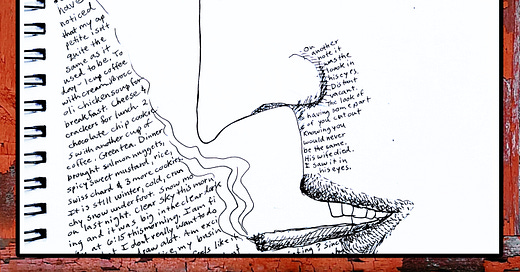 have
noticed
that my ap
petite isnt
quite the
same as it
used to be. To
day - 1 cup coffee
with cream, brocc
oli chicken soup for
breakfast. Cheese &
crackers for lunch. 2
chocolate chip cookie
s with another cup of
coffee. Green tea. Dinner
brought salmon nuggets,
spicy sweet mustard, rice,
swiss chard & 3 more cookies.
It is still winter, cold, crun
chy snow underfoot. Snow mo
on last night. Clear sky this mor
ing and it was big in the clear dark
sky at 6:15 this morning. I am fi
but I dont really want to do
draw alot. I am exci
my busin
feels like it
On
another
note it
was the
look in
his eyes.
Distant
vacant.
The look of
having some part
of you cut out
Knowing you
would never
be the same.
His wife died.
I saw it in
his eyes.
ating? Sin